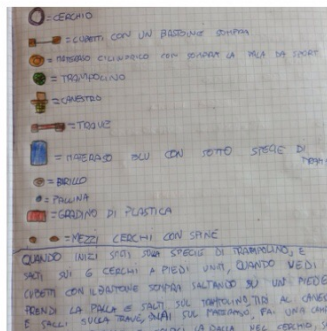 = CERCHIO
= CUBETTI CON UN BASTONE SOPRA
= MATERASSO CILINDRICO CON SOPRA LA PALLA DA SPORT
= TRAMPOLINO
= CANESTRO
= TRAVE
= MATERASSO BLU CON SOTTO SPECIE DI
= BIRILLO
= PALLINA
= GRADINO DI PLASTICA
= MEZZI CERCHI CON SPINE
QUANDO INIZI SALTI SULLA SPECIE DI TRAMPOLINO, E
SALTI SUI 6 CERCHI A PIEDI UNITI, QUANDO VEDI I
CUBETTI CON IL BASTONE SOPRA SALTANDO SU UN PIEDE
PRENDI LA PALLA E SALTI SUL TRAMPOLINO, TIRI AL CANES
E SALI SULLA TRAVE, SUL MATERASSO, FAI UNA
LA PALLA NEL CERCHIO